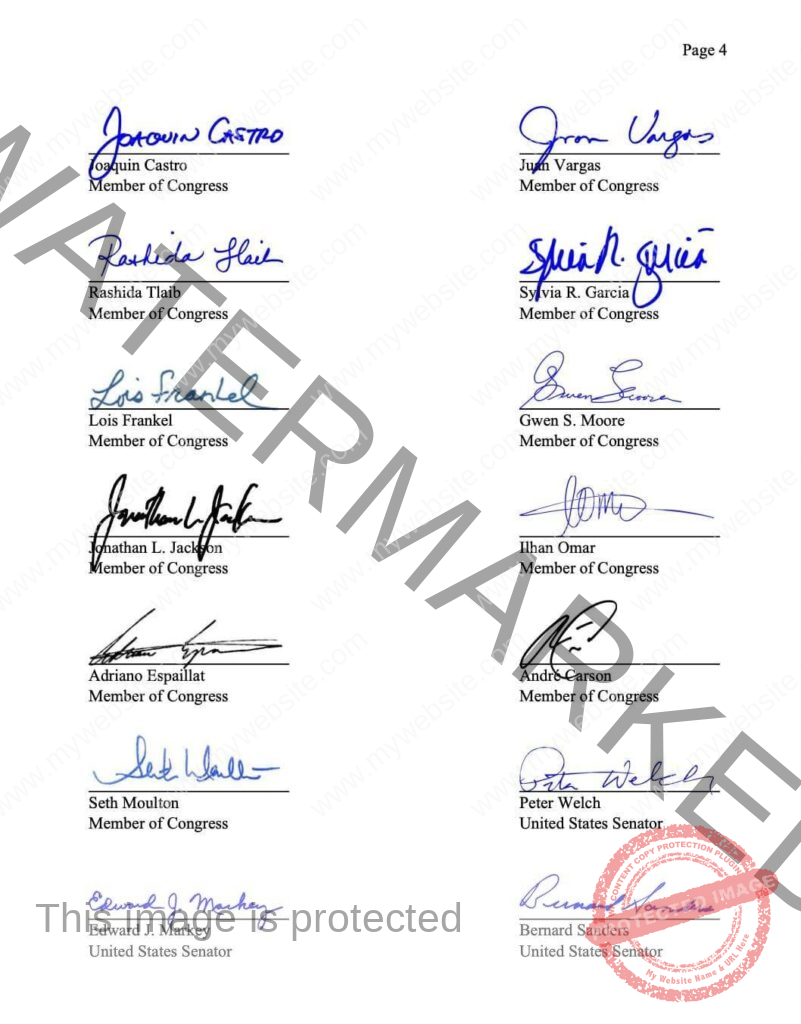 Page 4
JOAQUIN CASTRO
Joaquin Castro
Member of Congress
Juan Vargas
Juan Vargas
Member of Congress
Rashida Tlaib
Rashida Tlaib
Member of Congress
Sylvia R. Garcia
Sylvia R. Garcia
Member of Congress
Lois Frankel
Lois Frankel
Member of Congress
Gwen S Moore
Gwen S. Moore
Member of Congress
Jonathan L. Jackson
Jonathan L. Jackson
Member of Congress
Ilhan Omar
Member of Congress
Adriano Espaillat
Member of Congress
André Carson
Member of Congress
Seth Moulton
Seth Moulton
Member of Congress
Peter Welch
Peter Welch
United States Senator
Edward J. Markey
Edward J. Markey
United States Senator
Bernard Sanders
Bernard Sanders
United States Senator
WATERMARKED
This image is protected
WP CONTENT COPY PROTECTION PLUGIN
PROTECTED IMAGE
My Website Name & URL Here
www.mywebsite.com